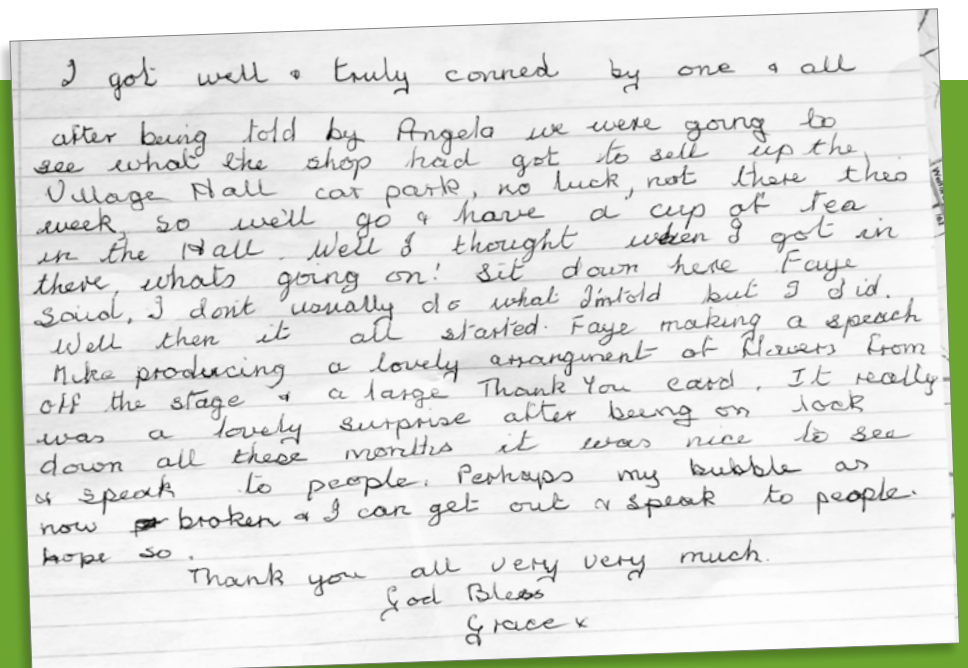 I got well & truly conned by one & all
after being told by Angela we were going to
see what the shop had got to sell up the
Village Hall car park, no luck, not there this
week, so we'll go & have a cup of tea
in the Hall. Well I thought when I got in
there, whats going on! Sit down here Faye
said, I don't usually do what I'm told but I did.
Well then it all started. Faye making a speach
Mike producing a lovely arrangment of flowers from
off the stage & a large Thank You card. It really
was a lovely surprise after being on lock
down all these months it was nice to see
& speak to people. Perhaps my bubble as
now broken & I can get out & speak to people.
hope so.
Thank you all very very much.
God Bless
Grace x